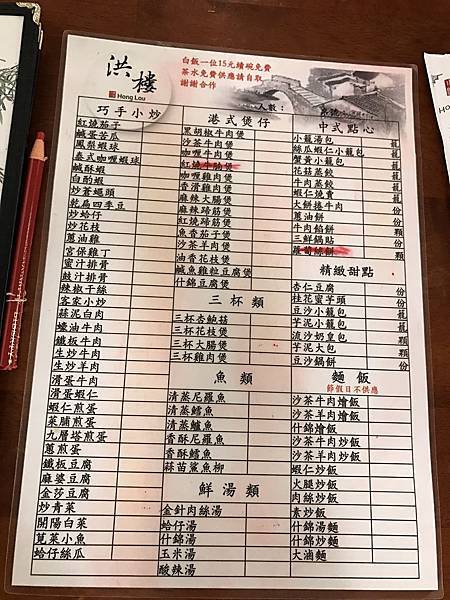 洪樓
Hong Lou
白飯一位15元續碗免費
茶水免費供應請自取
謝謝合作
人數：
巧手小炒
紅燒茄子
鹹蛋苦瓜
鳳梨蝦球
泰式咖喱蝦球
鹹酥蝦
白酌蝦
炒蒼蠅頭
乾扁四季豆
炒蛤仔
炒花枝
蔥油雞
宮保雞丁
蜜汁排骨
豉汁排骨
辣椒干絲
客家小炒
蒜泥白肉
蠔油牛肉
鐵板牛肉
生炒牛肉
生炒羊肉
滑蛋牛肉
滑蛋蝦仁
蝦仁煎蛋
菜脯煎蛋
九層塔煎蛋
蔥煎蛋
鐵板豆腐
麻婆豆腐
金莎豆腐
炒青菜
開陽白菜
莧菜小魚
蛤仔絲瓜
港式煲仔
黑胡椒牛肉煲
沙茶牛肉煲
咖喱牛肉煲
紅燒牛腩煲
咖喱雞肉煲
香滑雞肉煲
麻辣大腸煲
麻辣蹄筋煲
魚香茄子煲
沙茶羊肉煲
油香花枝煲
鹹魚雞粒豆腐煲
什錦豆腐煲
三杯類
三杯杏鮑菇
三杯花枝煲
三杯大腸煲
三杯雞肉煲
魚類
清蒸尼羅魚
清蒸鱈魚
清蒸鱸魚
香酥尼羅魚
香酥鱈魚
蒜苗鯊魚柳
鮮湯類
金針肉絲湯
蛤仔湯
什錦湯
玉米湯
酸辣湯
中式點心
小籠湯包 籠
絲瓜蝦仁小籠包 籠
蟹黃小籠包 籠
花菇蒸餃 籠
牛肉蒸餃 籠
蝦仁燒賣 籠
大餅捲牛肉 份
蔥油餅 份
牛肉餡餅 顆
三鮮鍋貼 份
蘿蔔絲餅 顆
精緻甜點
杏仁豆腐 份
桂花蜜芋頭 份
豆沙小籠包 籠
芋泥小籠包 籠
流沙奶皇包 顆
芋泥大包 顆
豆沙鍋餅 份
麵飯
節假日不供應
沙茶牛肉燴飯
沙茶羊肉燴飯
什錦燴飯
沙茶牛肉炒飯
沙茶羊肉炒飯
蝦仁炒飯
火腿炒飯
肉絲炒飯
素炒飯
什錦湯麵
什錦炒麵
大滷麵